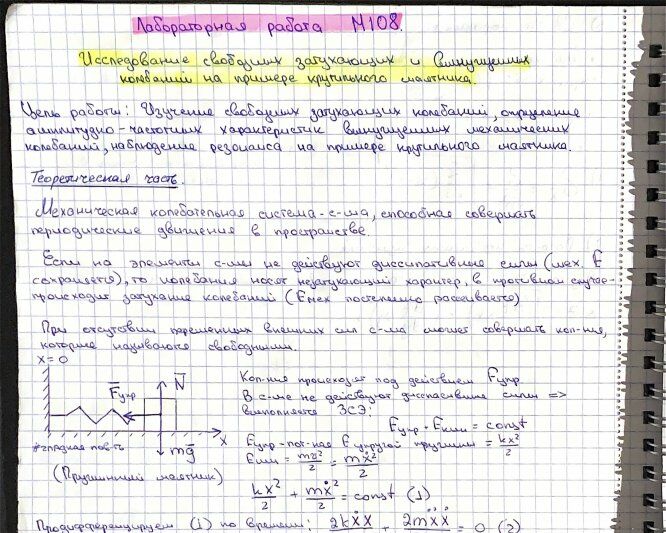 Лабораторная работа М108.
Исследование свободных затухающих и вынужденных
колебаний на примере крутильного маятника.
Цель работы: Изучение свободных затухающих колебаний, определение
амплитудно-частотных характеристик вынужденных механических
колебаний, наблюдение резонанса на примере крутильного маятника.
Теоретическая часть.
Механическая колебательная система-с-ма, способная совершать
периодические движения в пространстве.
Если на элементы с-мы не действуют диссипативные силы (мех. E
сохраняется), то колебания носят незатухающий характер, в противном случае-
происходит затухание колебаний (Eмех постепенно рассеивается)
При отсутствии переменных внешних сил с-ма может совершать кол-ния,
которые называются свободными.
x=0
F̅упр
N̅
x
mg̅
гладкая пов-ть
(Пружинный маятник)
Кол-ния происходят под действием Fупр.
В с-ме не действуют диссипативные силы =>
выполняется ЗСЭ:
Eупр + Eкин = const
Eупр-пот-ная E упругой пружины = kx²/2
Eкин = mv²/2 = mẋ²/2
kx²/2 + mẋ²/2 = const (1)
Продифференцируем (1) по времени: 2kẋx + 2mẋẍ = 0 (2)